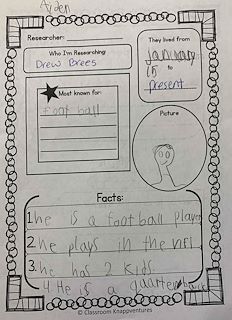 Researcher:
Who I'm Researching:
Drew Brees
They lived from
january
15
to
present
Most known for:
Foot ball
Picture
Facts:
1. he is a football player
2. he plays in the nfl
3. he has 2 kids.
4 He is a quarterback
© Classroom Knappventures